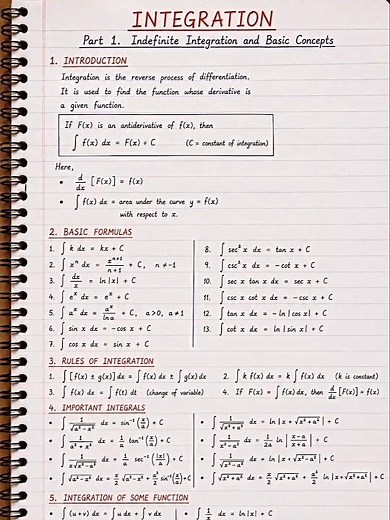 INTEGRATION
Part 1. Indefinite Integration and Basic Concepts
1. INTRODUCTION
Integration is the reverse process of differentiation.
It is used to find the function whose derivative is
a given function.
If F(x) is an antiderivative of f(x), then
∫ f(x) dx = F(x) + C (C = constant of integration)
Here,
• d/dx [F(x)] = f(x)
• ∫ f(x) dx = area under the curve y = f(x)
with respect to x.
2. BASIC FORMULAS
1. ∫ k dx = kx + C
2. ∫ xⁿ dx = xⁿ⁺¹/(n+1) + C, n ≠ -1
3. ∫ dx/x = ln |x| + C
4. ∫ eˣ dx = eˣ + C
5. ∫ aˣ dx = aˣ/ln a + C, a>0, a≠1
6. ∫ sin x dx = -cos x + C
7. ∫ cos x dx = sin x + C
8. ∫ sec² x dx = tan x + C
9. ∫ csc² x dx = -cot x + C
10. ∫ sec x tan x dx = sec x + C
11. ∫ csc x cot x dx = -csc x + C
12. ∫ tan x dx = -ln |cos x| + C
13. ∫ cot x dx = ln |sin x| + C
3. RULES OF INTEGRATION
1. ∫ [f(x) ± g(x)] dx = ∫ f(x) dx ± ∫ g(x) dx
2. ∫ k f(x) dx = k ∫ f(x) dx (k is constant)
3. ∫ f(x) dx = ∫ f(t) dt (change of variable)
4. If F(x) = ∫ f(x) dx, then d/dx [F(x)] = f(x)
4. IMPORTANT INTEGRALS
• ∫ 1/√(a²-x²) dx = sin⁻¹(x/a) + C
• ∫ 1/(a²+x²) dx = 1/a tan⁻¹(x/a) + C
• ∫ 1/(x√(x²-a²)) dx = 1/a sec⁻¹(|x|/a) + C
• ∫ √(a²-x²) dx = x/2 √(a²-x²) + a²/2 sin⁻¹(x/a) + C
• ∫ 1/√(x²+a²) dx = ln |x + √(x²+a²)| + C
• ∫ 1/(x²-a²) dx = 1/2a ln |(x-a)/(x+a)| + C
• ∫ 1/√(x²-a²) dx = ln |x + √(x²-a²)| + C
• ∫ √(x²+a²) dx = x/2 √(x²+a²) + a²/2 ln |x+√(x²+a²)| + C
5. INTEGRATION OF SOME FUNCTION
• ∫ (u+v) dx = ∫ u dx + ∫ v dx
• ∫ 1/x dx = ln |x| + C